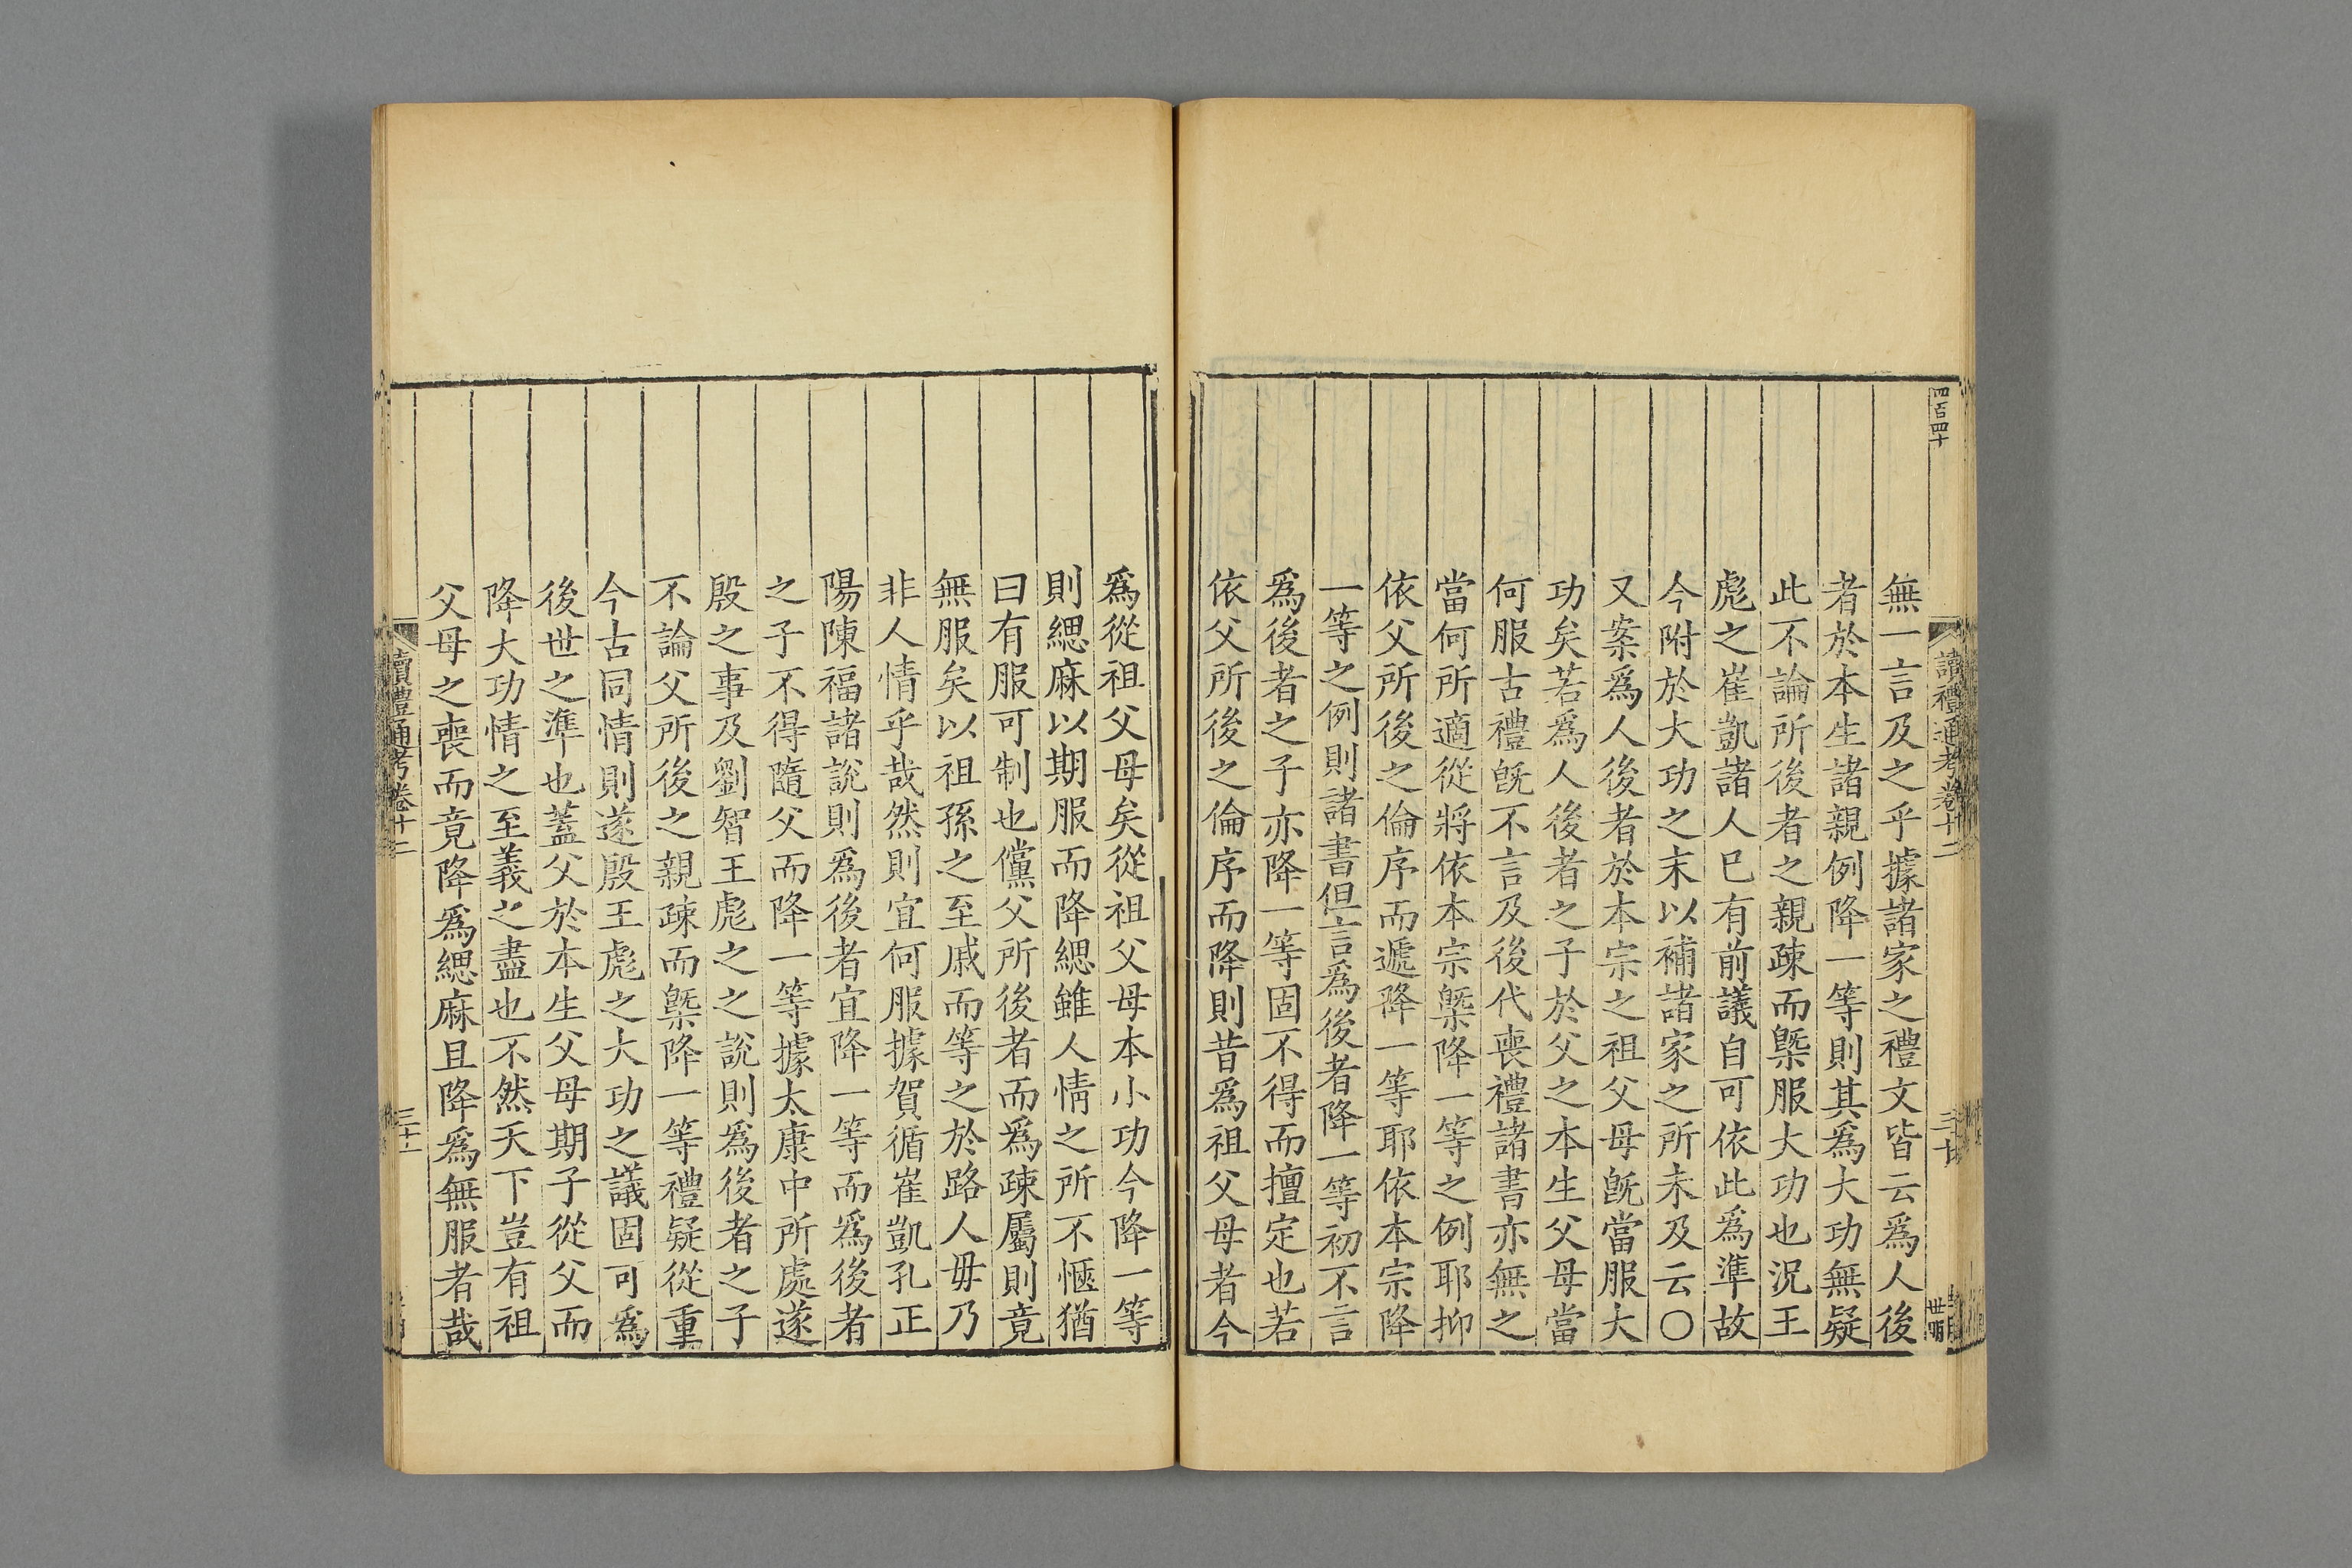 四百四十
讀禮通考卷十二
三十
無一言及之乎據諸家之禮文皆云爲人後
者於本生諸親例降一等則其爲大功無疑
此不論所後者之親疎而槩服大功也況王
彪之崔凱諸人已有前議自可依此爲準故
今附於大功之末以補諸家之所未及云〇
又案爲人後者於本宗之祖父母旣當服大
功矣若爲人後者之子於父之本生父母當
何服古禮旣不言及後代喪禮諸書亦無之
當何所適從將依本宗槩降一等之例耶抑
依父所後之倫序而遞降一等耶依本宗降
一等之例則諸書但言爲後者降一等初不言
爲後者之子亦降一等固不得而擅定也若
依父所後之倫序而降則昔爲祖父母者今
爲從祖父母矣從祖父母本小功今降一等
則緦麻以期服而降緦雖人情之所不愜猶
曰有服可制也儻父所後者而爲疎屬則竟
無服矣以祖孫之至戚而等之於路人毋乃
非人情乎哉然則宜何服據賀循崔凱孔正
陽陳福諸說則爲後者宜降一等而爲後者
之子不得隨父而降一等據太康中所處遂
殷之事及劉智王彪之之說則爲後者之子
不論父所後之親疎而槩降一等禮疑從重
今古同情則遂殷王彪之大功之議固可爲
後世之準也蓋父於本生父母期子從父而
降大功情之至義之盡也不然天下豈有祖
父母之喪而竟降爲緦麻且降爲無服者哉
讀禮通考卷十二
三十一